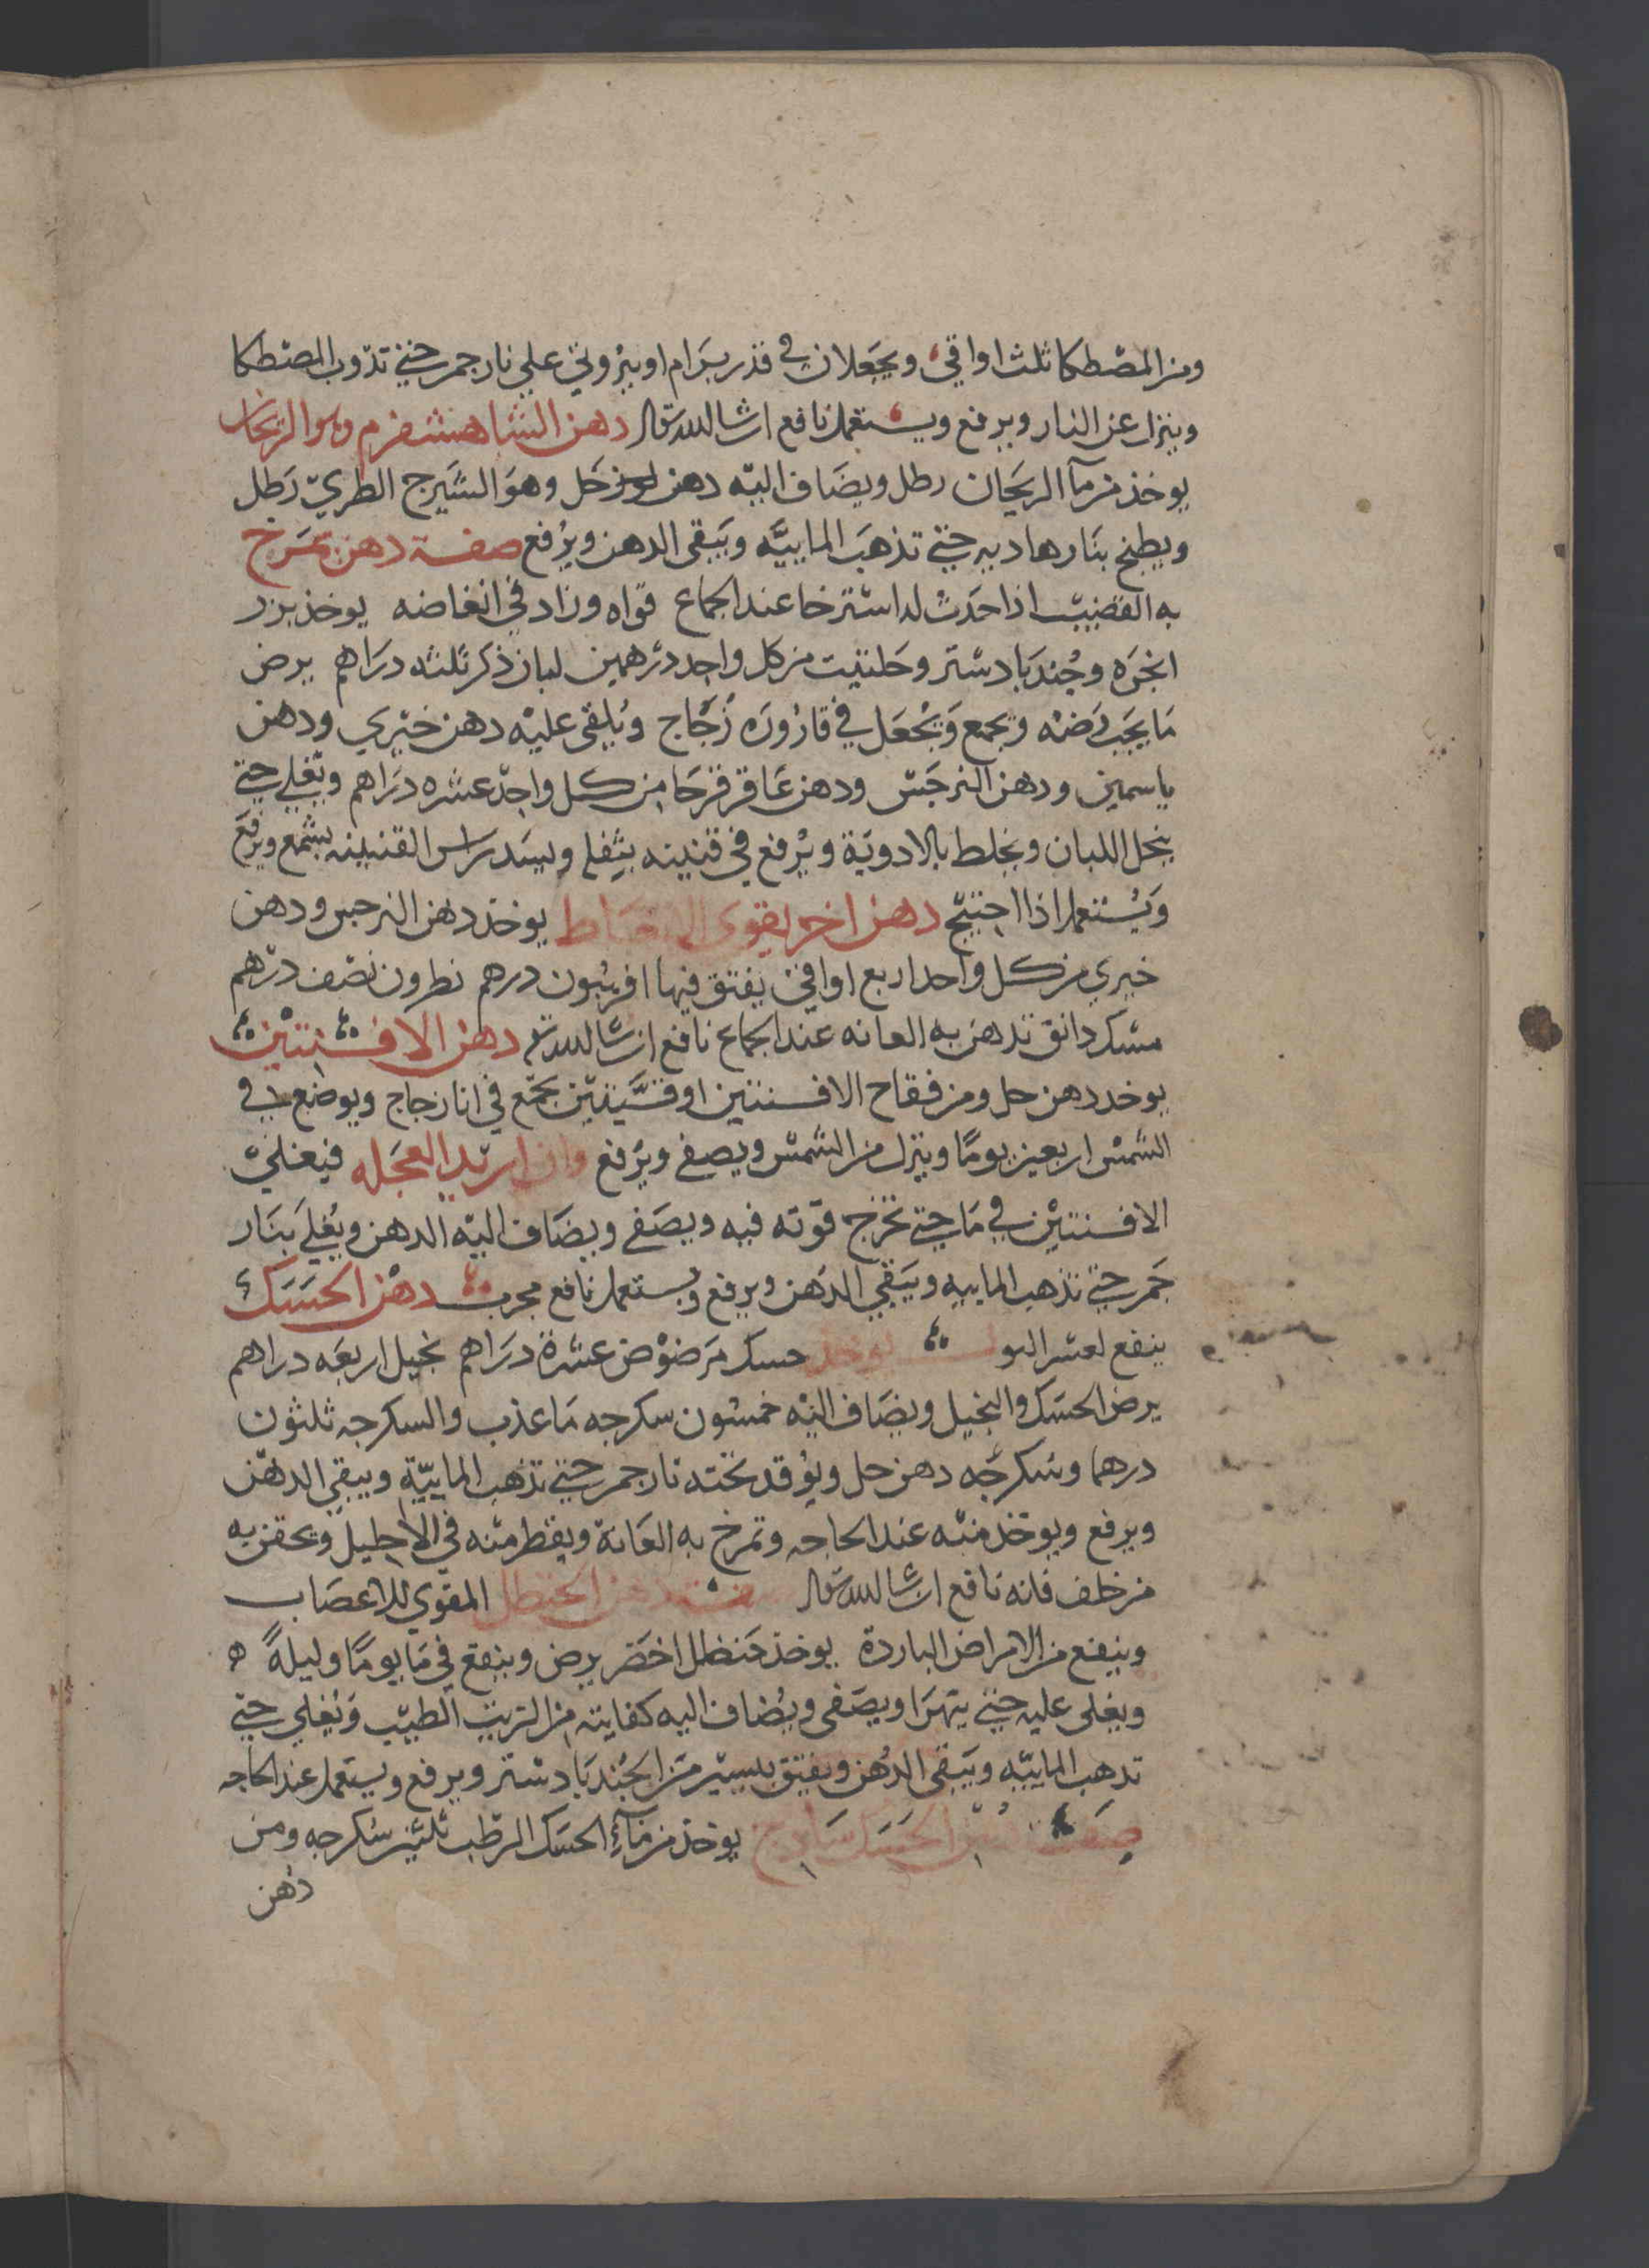 ومن المصطكا ثلث اواقي ويجعلان في قدر برام او بزوني علي نار جمر حتي تذوب المصطكا
وينزل عن النار ويرفع ويستعمل نافع ان شا الله تعالى دهن الشاهشفرم وهو الريحان
يوخذ من مآ الريحان رطل ويضاف اليه دهن حل وهو الشيرج الطري رطل
ويطبخ بنار هاديه حتي تذهب الماييه ويبقى الدهن ويرفع صفة دهن يمرخ
به القضيب اذا حدث له استرخا عند الجماع قواه وزاد في انعاضه يوخذ بزر
انجره وجندبادستر وحلتيت من كل واحد درهمين لبان ذكر ثلثه دراهم يرض
ما يجب رضه ويجمع ويجعل في قاروره زجاج ويلقى عليه دهن خيري ودهن
ياسمين ودهن النرجس ودهن عاقرقرحا من كل واحد عشره دراهم ويغلي حتي
ينحل اللبان ويخلط بالادوية ويرفع في قنينه بثفله ويسد راس القنينه بشمع ويرفع
ويستعمل اذا احتيج دهن اخر يقوي الانعاظ يوخذ دهن النرجس ودهن
خيري من كل واحد اربع اواقي يفتق فيها افربيون درهم نطرون نصف درهم
مسك دانق تدهن به العانه عند الجماع نافع ان شا الله تعالى دهن الافسنتين
يوخذ دهن حل ومن فقاح الافسنتين اوقيتين يجمع في انا زجاج ويوضع في
الشمس اربعين يوما وينزل من الشمس ويصفى ويرفع وان اريد العجله فيغلي
الافسنتين في ما حتي تخرج قوته فيه ويصفى ويضاف اليه الدهن ويغلي بنار
جمر حتي تذهب الماييه ويبقي الدهن ويرفع ويستعمل نافع مجرب دهن الحسك
ينفع لعسر البول يوخذ حسك مرضوض عشرة دراهم نجيل اربعه دراهم
يرض الحسك والنجيل ويضاف اليه خمسون سكرجه ما عذب والسكرجه ثلثون
درهما وسكرجه دهن حل ويوقد تحته نار جمر حتي تذهب الماييه ويبقي الدهن
ويرفع ويوخذ منه عند الحاجه وتمرخ به العانة ويقطر منه في الاحليل ويحقن به
من خلف فانه نافع ان شا الله تعالى صفة دهن الحنظل المقوي للاعصاب
وينفع من الامراض الباردة يوخذ حنظل اخضر يرض وينقع في ما يوما وليلة
ويغلى عليه حتي يتهرا ويصفى ويضاف اليه كفايته من الزيت الطيب ويغلي حتي
تذهب الماييه ويبقى الدهن ويفتق بيسير من الجندبادستر ويرفع ويستعمل عند الحاجه
صفة دهن الحسك ساذج يوخذ من مآء الحسك الرطب ثلثين سكرجه ومن
دهن